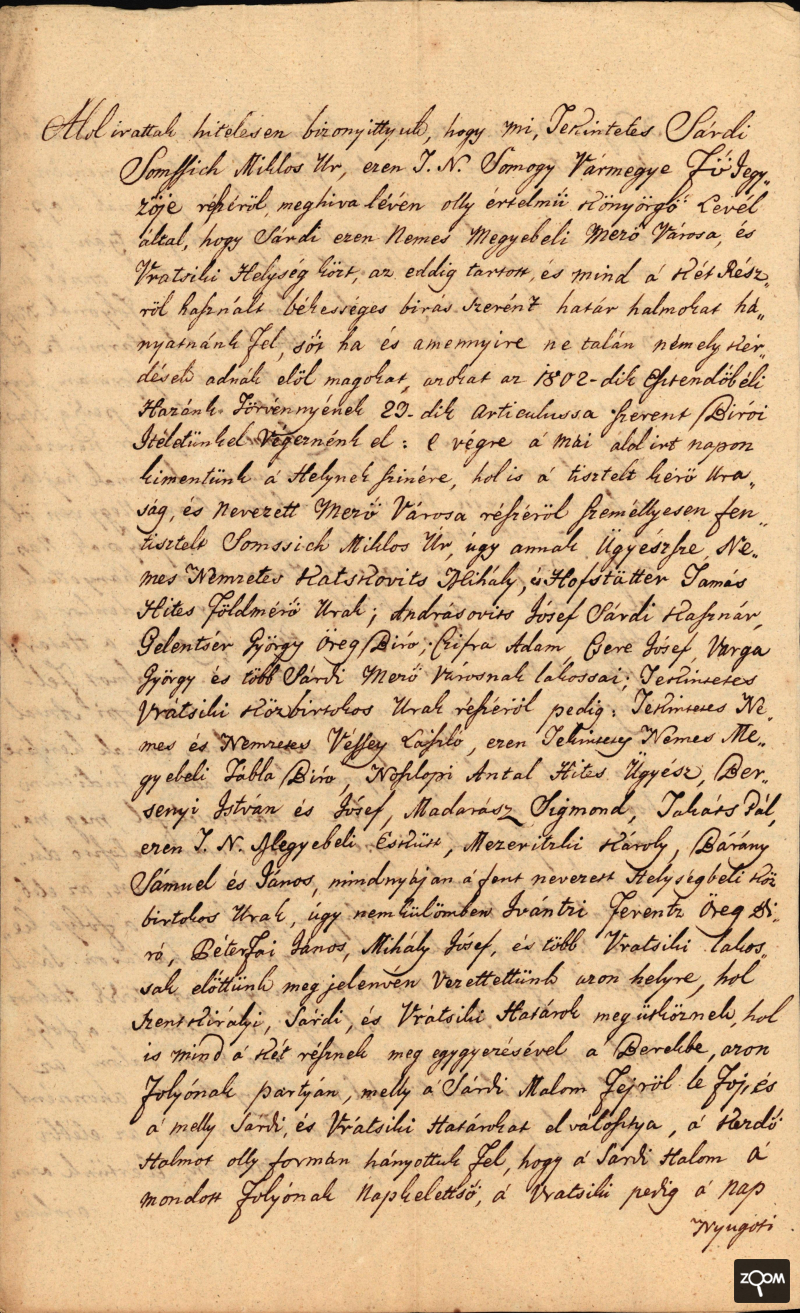 Alol irattak hitelesen bizonyittyuk, hogy mi, Tekintetes Sárdi
Somssich Miklos Ur, ezen T. N. Somogy Vármegye Fő Jegy„
zője részéröl, meghiva lévén olly értelmű Könyörgő Levél
által, hogy Sárdi ezen Nemes Megyebeli Mező Városa, és
Vratsiki Helység közt, az eddig tartott, és mind á Két Rész„
röl használt békességes birás szerént határ halmokat há„
nyatnánk fel, sőt ha és amennyire ne talán némely Kér„
dések adnák elöl magokat, azokat az 1802-dik Esztendőbéli
Hazánk Törvénnyének 29-dik Articulussa szerent Birói
Itéletünkel Végeznénk el: E végre á mai alol irt napon
kimentünk á Helynek szinére, hol is á tisztelt kérő Ura„
ság, és Nevezett Mező Városa részéröl személlyesen fen„
tisztelt Somssich Miklos Úr, úgy annak Ügyéssze, Ne„
mes Nemzetes Katskovits Mihály, és Hofstätter Tamás
Hites Földmérő Urak; Andrásovits Jósef Sárdi Kasznár,
Gelentsér György Öreg Biró, Czifra Adam, Csere Jósef, Varga
György és több Sárdi Mező Városnak lakossai; Tekintetes
Vrátsiki Közbirtokos Urak részéröl pedig: Tekintetes Ne„
mes és Nemzetes Véssey László, ezen Tekintetes Nemes Me„
gyebeli Tábla Biró, Noszlopi Antal Hites Ügyész, Ber„
senyi István és Jósef, Madarász Sigmond, Takáts Pál,
ezen T. N. Megyebeli Eskütt, Mezeritzki Károly, Bárány
Sámuel és János, mindnyájan á fent nevezett Helységbeli Köz
birtokos Urak, úgy nemkülömben Ivántzi Ferentz Öreg Bi„
ró, Péterfai János, Mihály Jósef, és több Vratsiki lakos„
sak előttünk megjelenvén Vezettettünk azon helyre, hol
Szent Királyi, Sárdi, és Vrátsiki Határok megütköznek, hol
is mind á Két résznek meg egygyezésével a Berekbe, azon
folyónak partyán, melly á Sárdi Malom fejröl le foj, és
á melly Sárdi, és Vrátsiki Határokat elválosztya, á Kezdő
Halmot olly formán hányottuk fel, hogy á Sárdi Halom á
mondott folyónak Napkeletső, á Vratsiki pedig á nap
Nyugoti
ZOOM